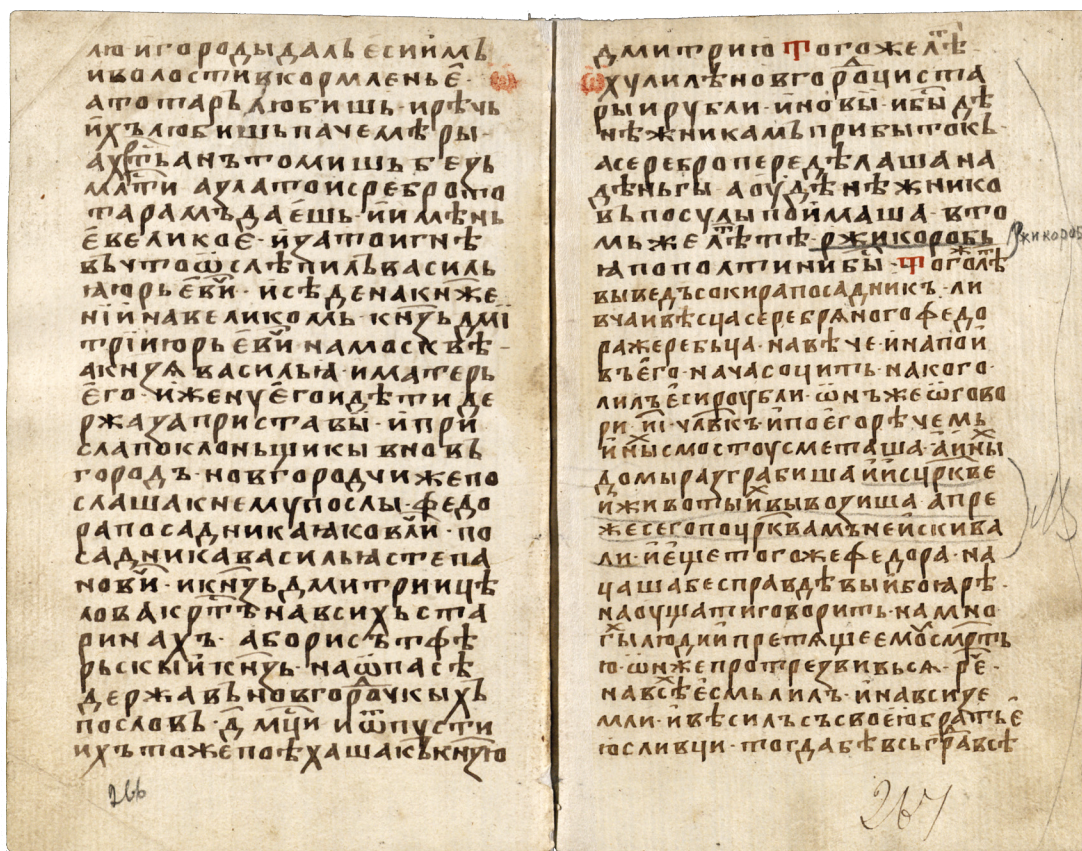 лю · и городы далъ еси имъ
и волости в кормленье ·
а тотаръ любишь · и рѣчь
ихъ любишь паче мѣры ·
а хр҃тьанъ томишь без
мл҃ти а злато и сребро то
таромъ даешь · и имѣнь
е великое · и за то и гнѣ
въ что ѡслѣпилъ василь
ꙗ юрьеви · и сѣде на кн҃же
нїи на великомь · кн҃зь дми
трїи юрьеви на москвѣ ·
а кн҃зѧ василья · и матерь
его · и жену его и дѣти де
ржа за приставы · и при
сла поклоньщикы в новъ
город ъ · новгородчи же по
слаша к нему послы · федо
ра посадника ꙗковли · по
садника василья степа
нови · и кн҃зь дмитрии цѣ
лова кр҃тъ на всихъ ста
ринахъ · а борисъ тфѣ
рьскыи кн҃зь · на ѡпасѣ
державъ новгорочкыхъ
пословъ · д҃ мц҃и и ѿпусти
ихъ тоже поѣхаша къ кнз҃ю
266
дмитрию того же лѣ
ѡхулилѣ новгороци ста
рыи рубли · и новы · и бы дѣ
нѣжникамъ прибытокъ ·
а серебро передѣлаша на
дѣньгы · а оу дѣнѣжнико
въ посулы поимаша · в то
мь же лѣтѣ · ржи коробь
ꙗ по полтини бы · того лѣ
выведъ сокира посадникъ · ли
вча и вѣсца серебряного федо
ра жеребьца · на вѣче · и напои
въ его · нача сочить · на кого ·
лилъ еси роубли · ѡнъ же ѡгово
ри · и҃і · чл҃вкъ и по его рѣчемь
иныс мостоу сметаша · а ины
домы разграбиша и ис цр҃кве
и животы вывозиша · а пре
же сего по цр҃квамъ не искива
ли · и еще того же федора · на
чаша бес правдѣвыи боꙗрѣ ·
наоучати говорить · на мно
гы люди претѧще емоу смр҃ть
ю · ѡн же протрезвивьсѧ · р҃е ·
на всѣ есмь лилъ · и на вси зе
мли · и вѣсилъ съ своею братье
ю сливци · тогда бѣ всь гра всѣ
267
Ржи короб